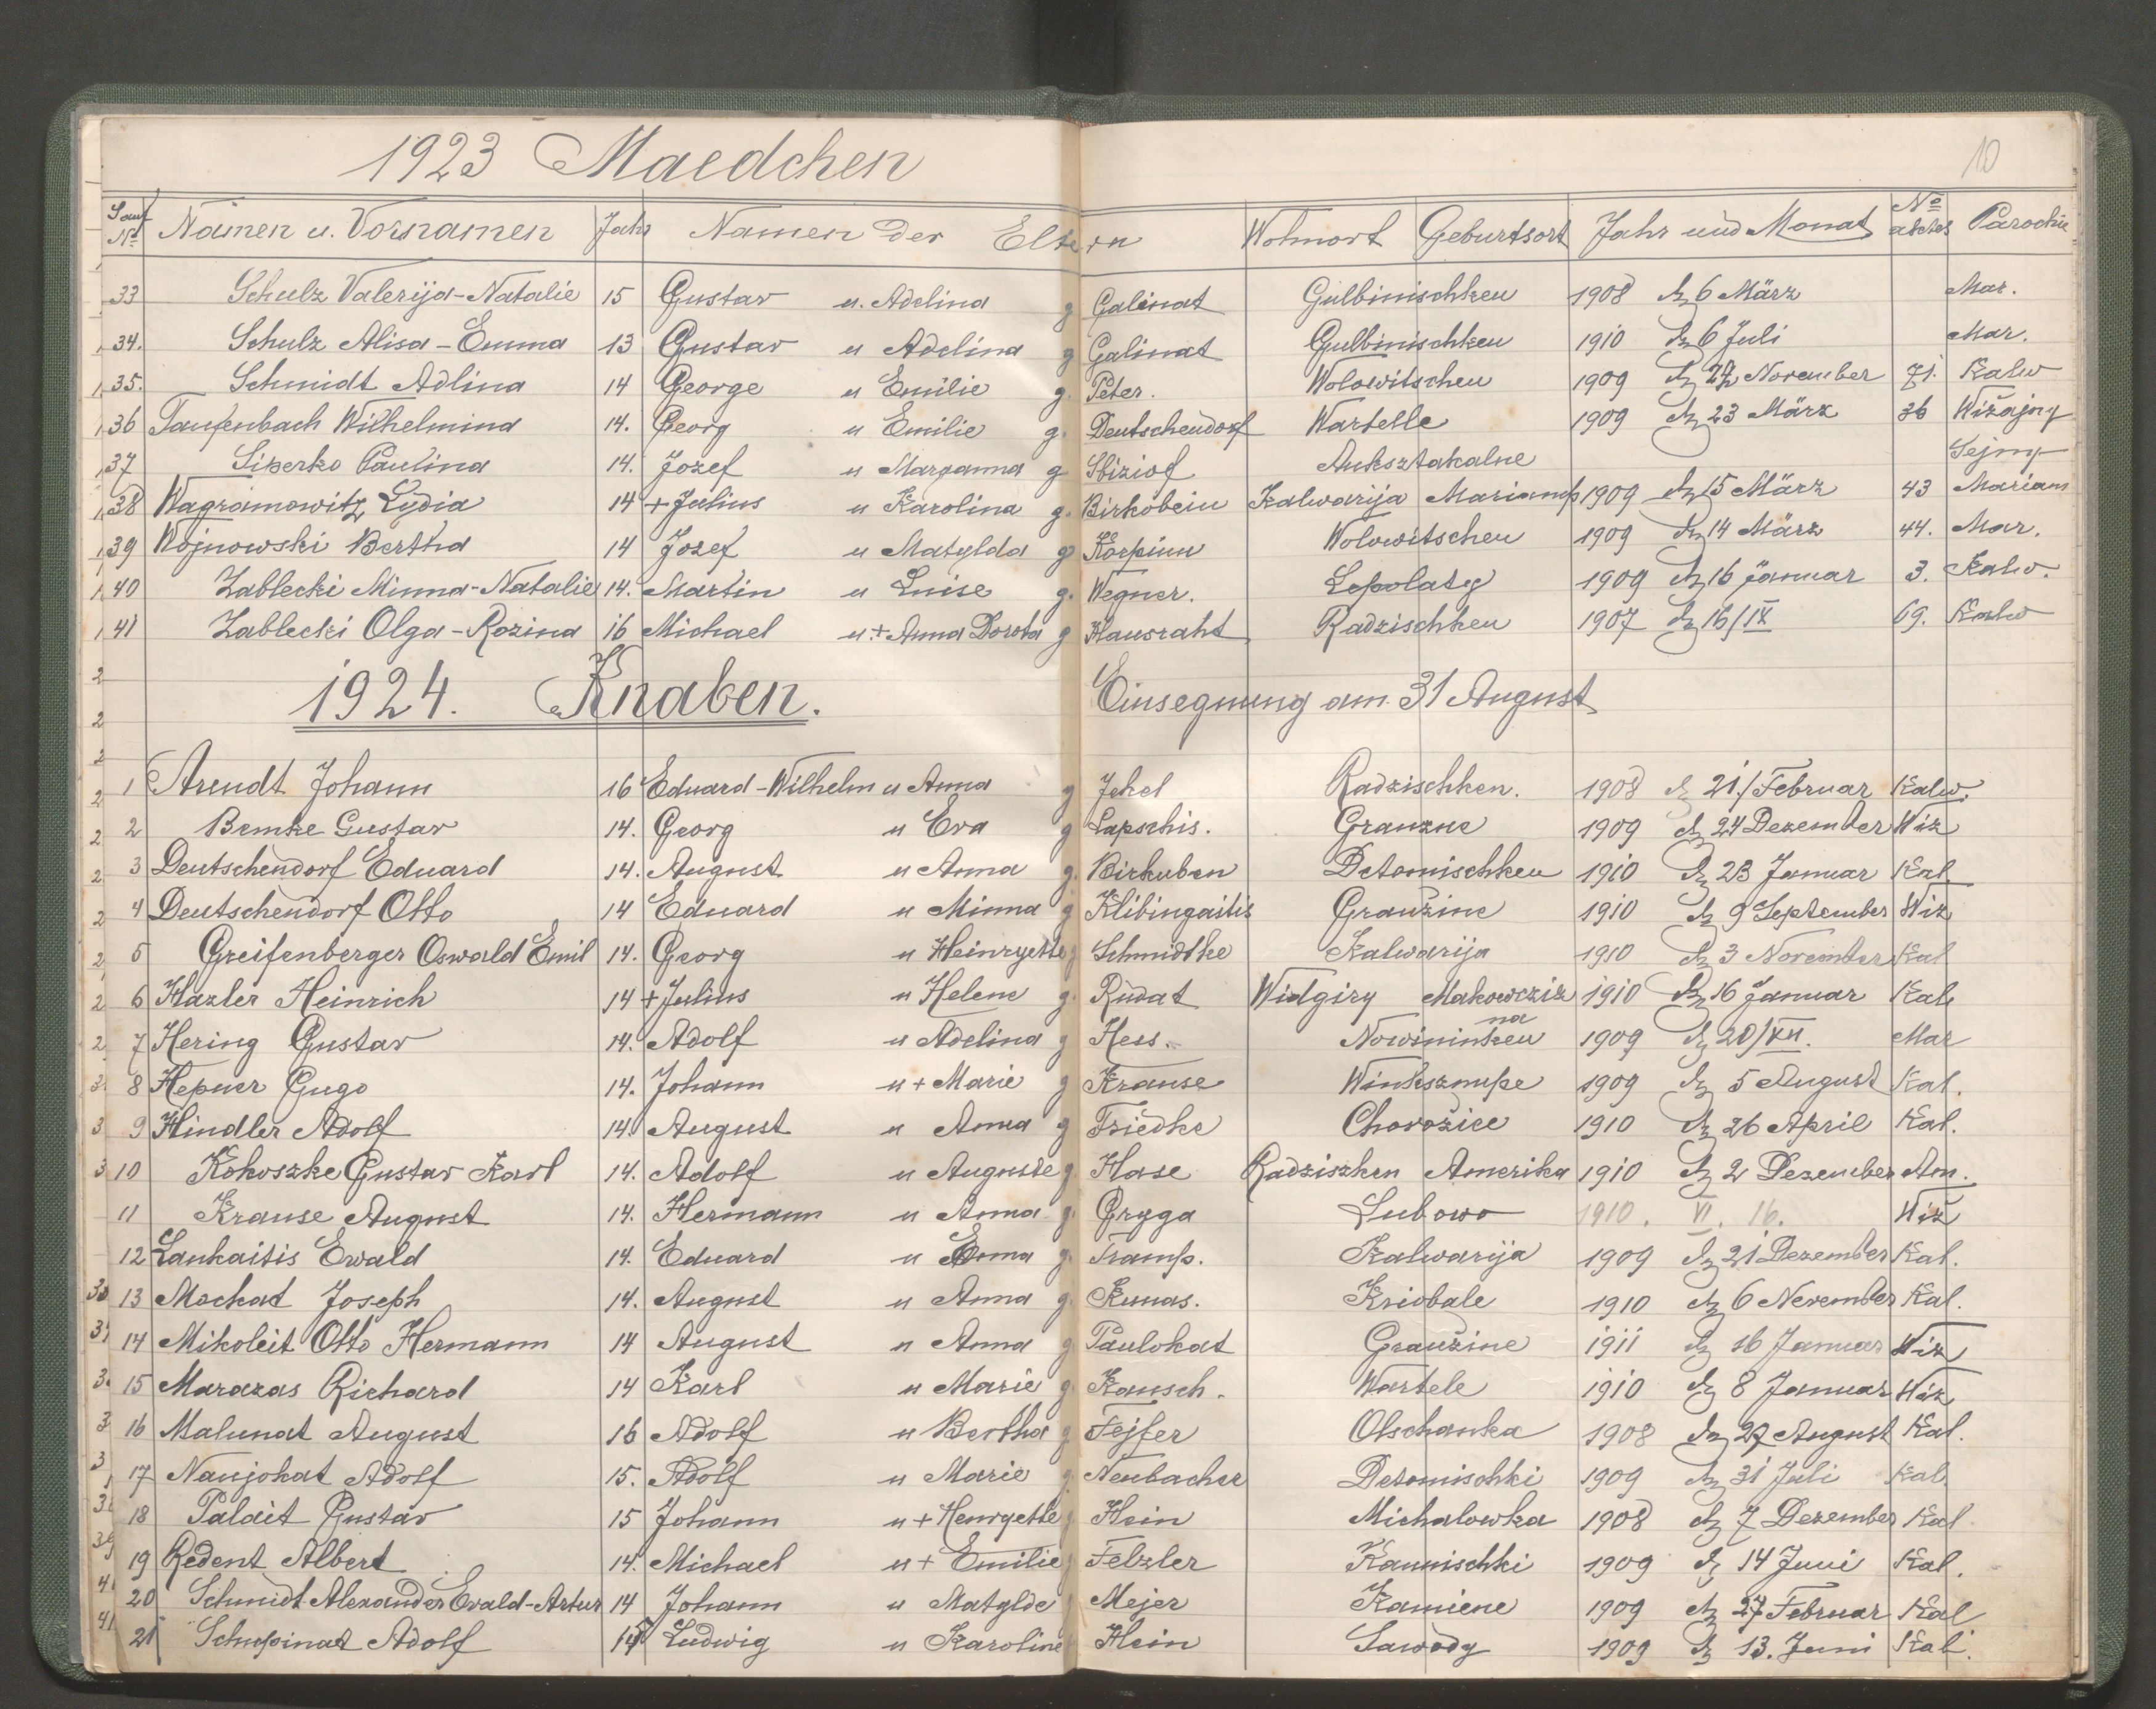 1923 Maedchen
10
Lauf No Namen u. Vornamen Jahr Namen der Eltern Wohnort Geburtsort Jahr und Monat No aktes Parochie
33 Schulz Valerija-Natalie 15 Gustav u. Adelina g Galinat Gulbinischken 1908 d. 6 März Mar.
34. Schulz Alisa-Emma 13 Gustav u Adelina g Galinat Gulbinischken 1910 d. 6 Juli Mar.
35. Schmidt Adlina 14 George u Emilie g. Peter. Wolowitschen 1909 d. 27 November 71. Kalw
36 Taufenbach Wilhelmina 14. Georg u Emilie g. Deutschendorf Wartelle 1909 d. 23 März 36 Wižajny
37 Siperko Paulina 14. Jozef u Maryanna g Auksztakalne Sejny
38 Wagramowitz Lydia 14 + Julius u Karolina g. Birkobein Kalwarija Mariamp 1909 d. 15 März 43 Mariam
39 Wojnowski Bertha 14 Jozef u Matylda g Korpinn Wolowitschen 1909 d. 14 März 44. Mar.
40 Zablecki Minna-Natalie 14. Martin u Luise g. Wegner. Lepolaty 1909 d. 16 Januar 3. Kalw.
41 Zablecki Olga-Rozina 16 Michael u. + Anna Dorota g Hausraht Radzischken 1907 d. 16/IX 69. Kalw
1924. Knaben. Einsegnung am 31 August
1 Arendt Johann 16 Eduard-Wilhelm u Anna g Jekel Radzischken. 1908 d. 21/Februar Kalw.
2 Bemke Gustav 14. Georg u Eva g Lapschis. Grauzne 1909 d. 24 Dezember Wiz
3 Deutschendorf Eduard 14. August u Anna g. Birkuben Detomischken 1910 d. 23 Januar Kal.
4 Deutschendorf Otto 14 Eduard u Minna g Klibingaitis Graužine 1910 d. 9 September Wiz
5 Greifenberger Oswald Emil 14. Georg u Heinryette g Schmidtke Kalwarija 1910 d. 3 November Kal
6 Hazler Heinrich 14 + Julius u Helene g. Rudat Widgiry Makowcziz 1910 d. 16 Januar Kal.
7 Hering Gustav 14. Adolf u Adelina g Hess. Nowininken na 1909 d. 20/XII. Mar
8 Hepner Gugo 14. Johann u + Marie g Krause Winksznupe 1909 d. 5 August Kal.
9 Hindler Adolf 14. August u Anna g Friedke Chorožice 1910 d. 26 April Kal.
10 Kokoszke Gustav Karl 14. Adolf u Auguste g Hase Radziszken Amerika 1910 d. 2 Dezember Am.
11 Krause August 14. Hermann u Anna g. Gryga Lubowo 1910. VI. 16. Wiž
12 Laukaitis Ewald 14. Eduard u Emma g. Tramp. Kalwarija 1909 d. 21 Dezember Kal.
13 Mockat Joseph 14. August u Anna g. Kunas. Kriobale 1910 d. 6 November Kal.
14 Mikoleit Otto Hermann 14 August u Anna g. Paulokat Graužine 1911 d. 16 Januar Wiz
15 Marazas Richard 14 Karl u Marie g. Kausch. Wartele 1910 d. 8 Januar Wiz
16 Malunat August 16 Adolf u Bertha g Fejfer Olschanka 1908 d. 27 August Kal.
17 Naujokat Adolf 15. Adolf u Marie g. Neubacher Detomischki 1909 d. 31 Juli Kal.
18 Palait Gustav 15 Johann u + Henryette g Hein Michalowka 1908 d. 7 Dezember Kal
19 Redent Albert 14. Michael u + Emilie g Felzler Kaunischki 1909 d. 14 Juni Kal.
20 Schmidt Alexander Evald-Artur 14 Johann u Matylde g Mejer Kamiene 1909 d. 27 Februar Kal
21 Schupinat Adolf 14 Ludwig u Karoline Hein Sawody 1909 d. 13. Juni Kal.